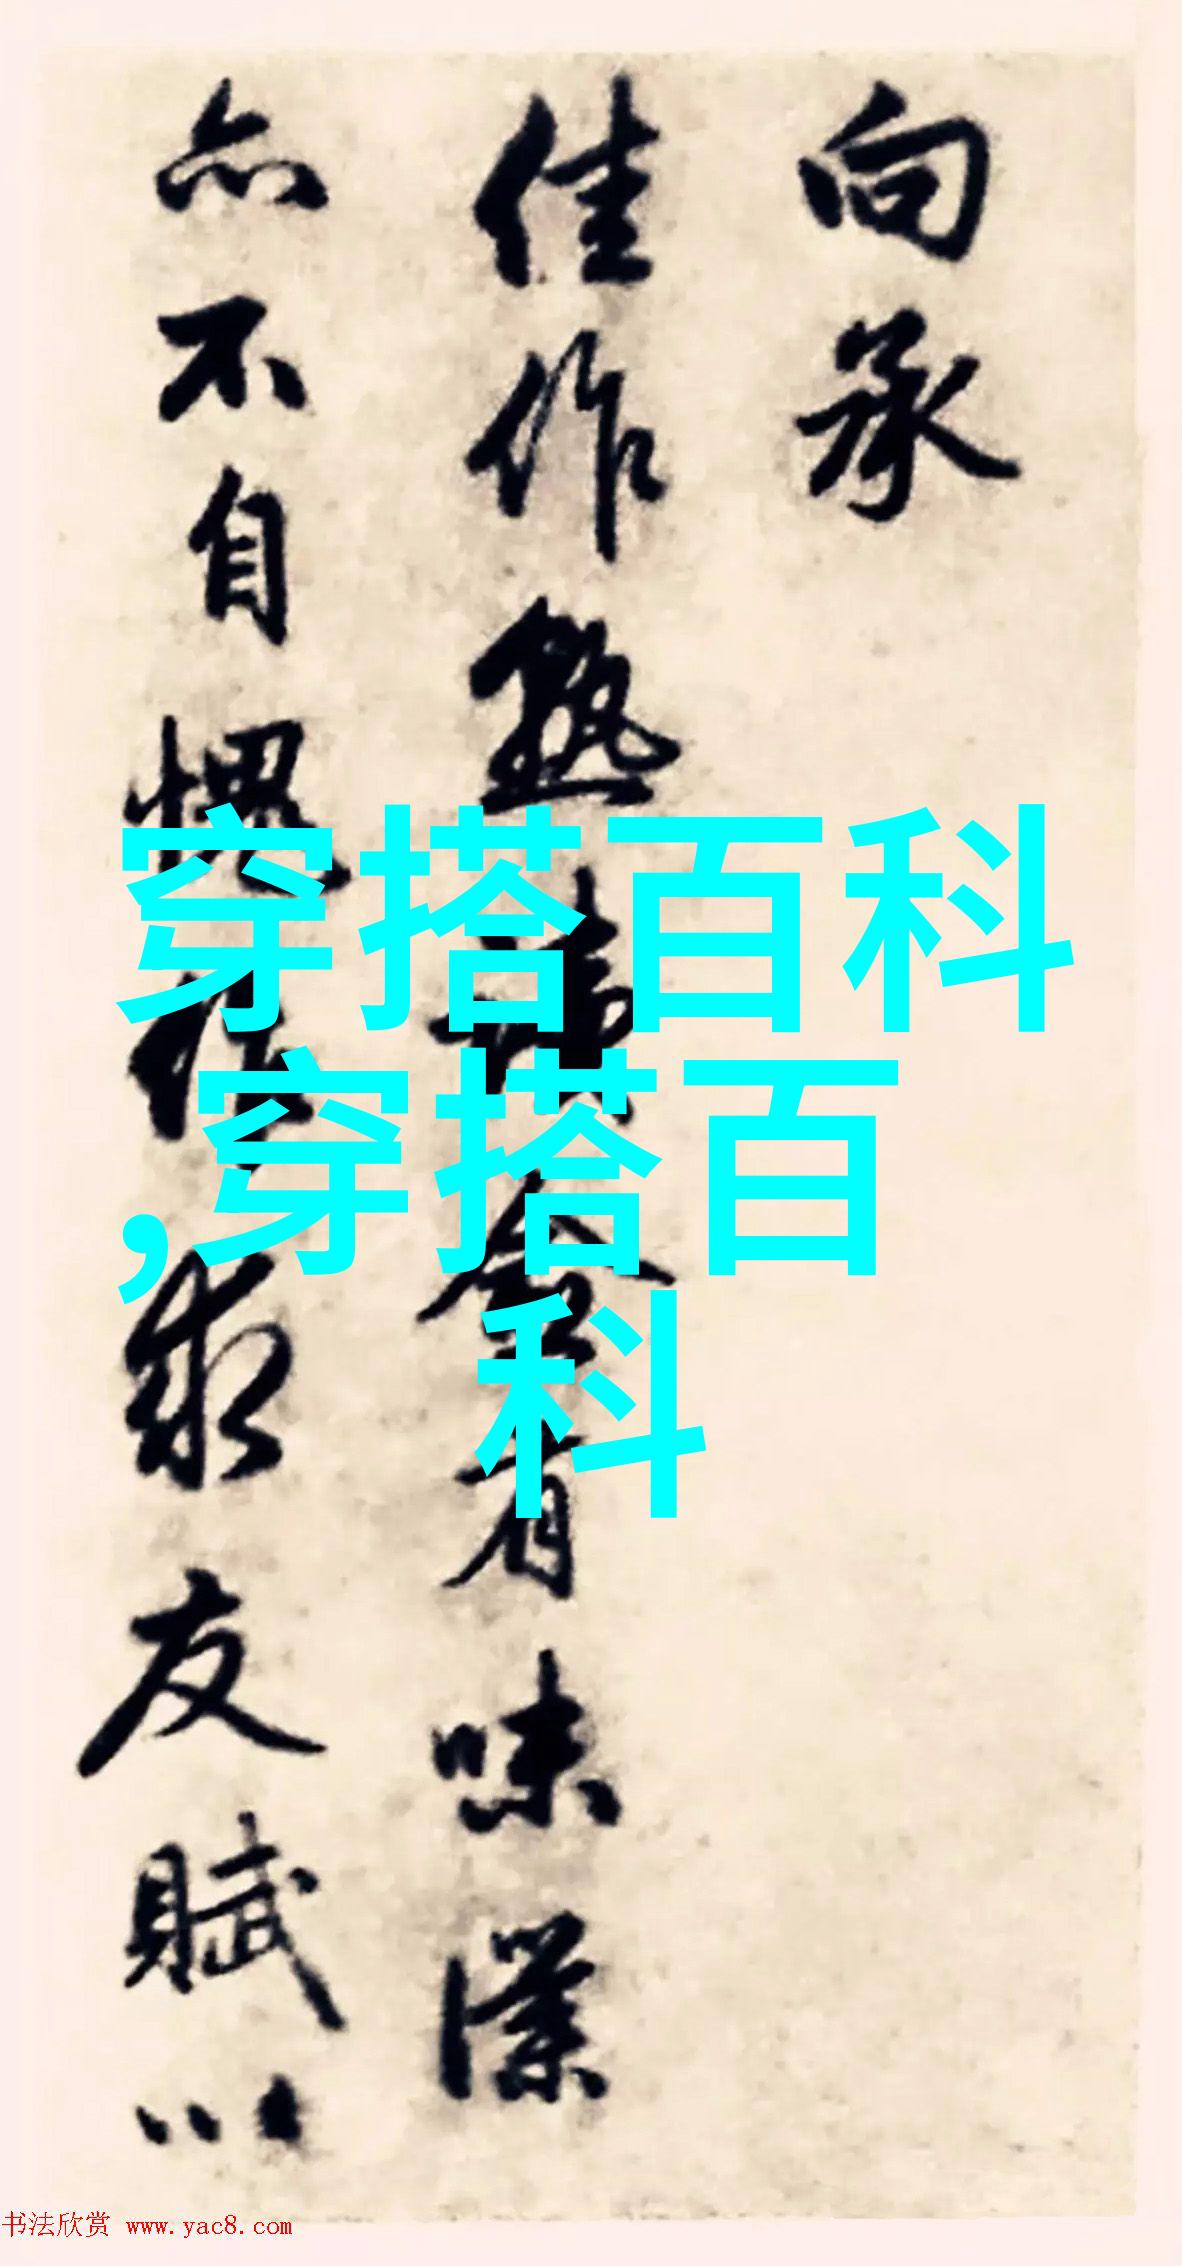 向承
佳作熟有味僕
亦不自愧作求友賦以
穿搭百科
,穿搭百
科
书法欣赏 www.yac8.com